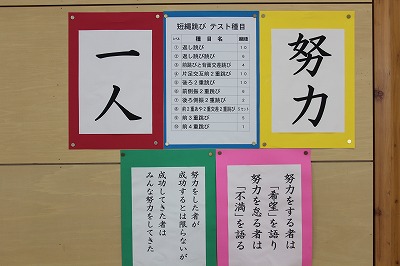 一人
短縄跳び テスト種目
レベル 種目名 回数
① 返し跳び 10
② 返し跳び跳び 8
③ 前跳びと背面交差跳び 4
④ 片足交互前2重跳び 10
⑤ 後ろ2重跳び 10
⑥ 前側振2重跳び 8
⑦ 後ろ側振2重跳び 2
⑧ 前2重あや2重交差2重跳び
⑨ 前3重跳び 5
⑩ 前4重跳び 1
努力
努力をした者が
成功するとは限らないが
成功してきた者は
みんな努力をしてきた
努力をする者は
「希望」を語り
努力を怠る者は
「不満」を語る